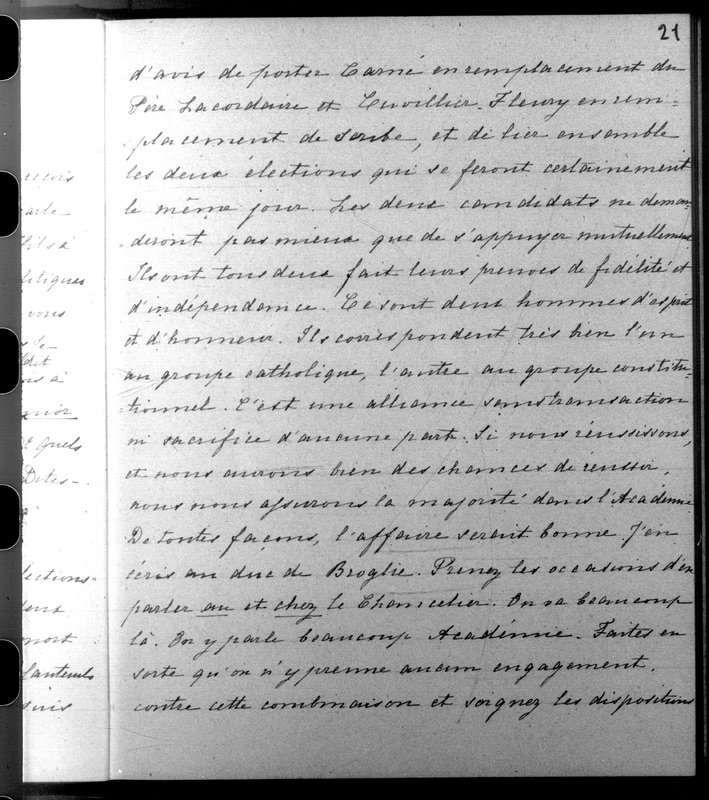 21
d'avis de porter Carné en remplacement du
Père Lacordaire et Cuvillier-Fleury en rem-
placement de Scribe, et de lier ensemble
les deux élections qui se feront certainement
le même jour. Les deux candidats ne deman-
deront pas mieux que de s'appuyer mutuellement
Ils ont tous deux fait leurs preuves de fidélité et
d'indépendance. Ce sont deux hommes d'esprit
et d'honneur. Ils correspondent très bien l'un
au groupe catholique, l'autre au groupe constitu-
tionnel. C'est une alliance sans transaction
ni sacrifice d'aucune part. Si nous réussissons,
et nous aurons bien des chances de réussir,
nous nous assurons la majorité dans l'Académie
De toutes façons, l'affaire serait bonne. J'en
écris au duc de Broglie. Prenez les occasions d'en
parler au et chez le Chancelier. On va beaucoup
là. On y parle beaucoup Académie. Faites en
sorte qu'on n'y prenne aucun engagement.
contre cette combinaison et soignez les dispositions
litiques
vous
quels
Dites-
lections.
mort
fauteuils
suis